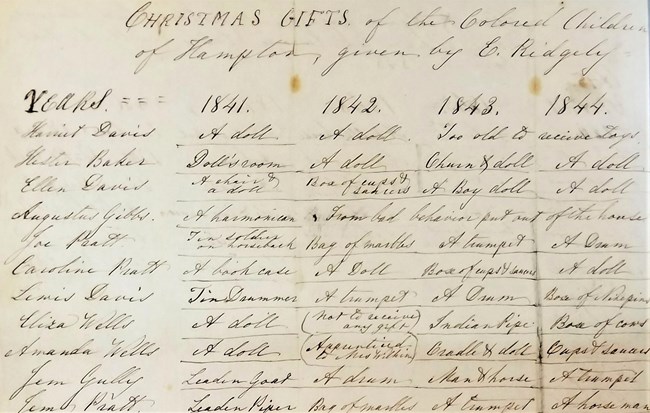 CHRISTMAS GIFTS. of the Colored Children
of Hampton, given by E. Ridgely
YEARS. 1841. 1842. 1843. 1844.
Harriet Davis A doll A doll. Too old to receive Toys.
Hester Baker Doll's room A doll Churn & doll A doll
Ellen Davis A chair & a doll Box of cups & saucers A Boy doll A doll
Augustus Gibbs. A harmonican From bad behavior put out of the house
Joe Pratt Tin soldier on horseback Bag of marbles A trumpet A Drum
Caroline Pratt A book case A Doll Box of cups & saucers A doll
Lewis Davis Tin Drummer A trumpet A Drum Box of
Eliza Wells A doll (Not to receive any gift) Indian Pipe Box of cows
Amanda Wells A doll (Apprenticed to Mrs Cradle & doll Cups & saucers
Jem Gully Leaden Goat A drum Man & horse A trumpet
Jem Pratt Leaden Piper Bag of marbles A trumpet A horse man